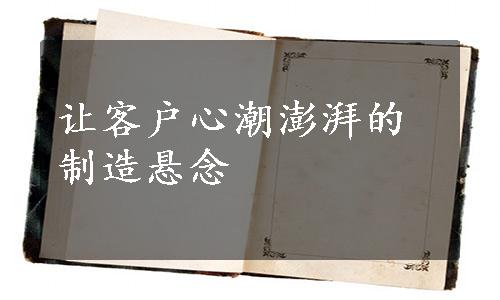 让客户心潮澎湃的
制造悬念